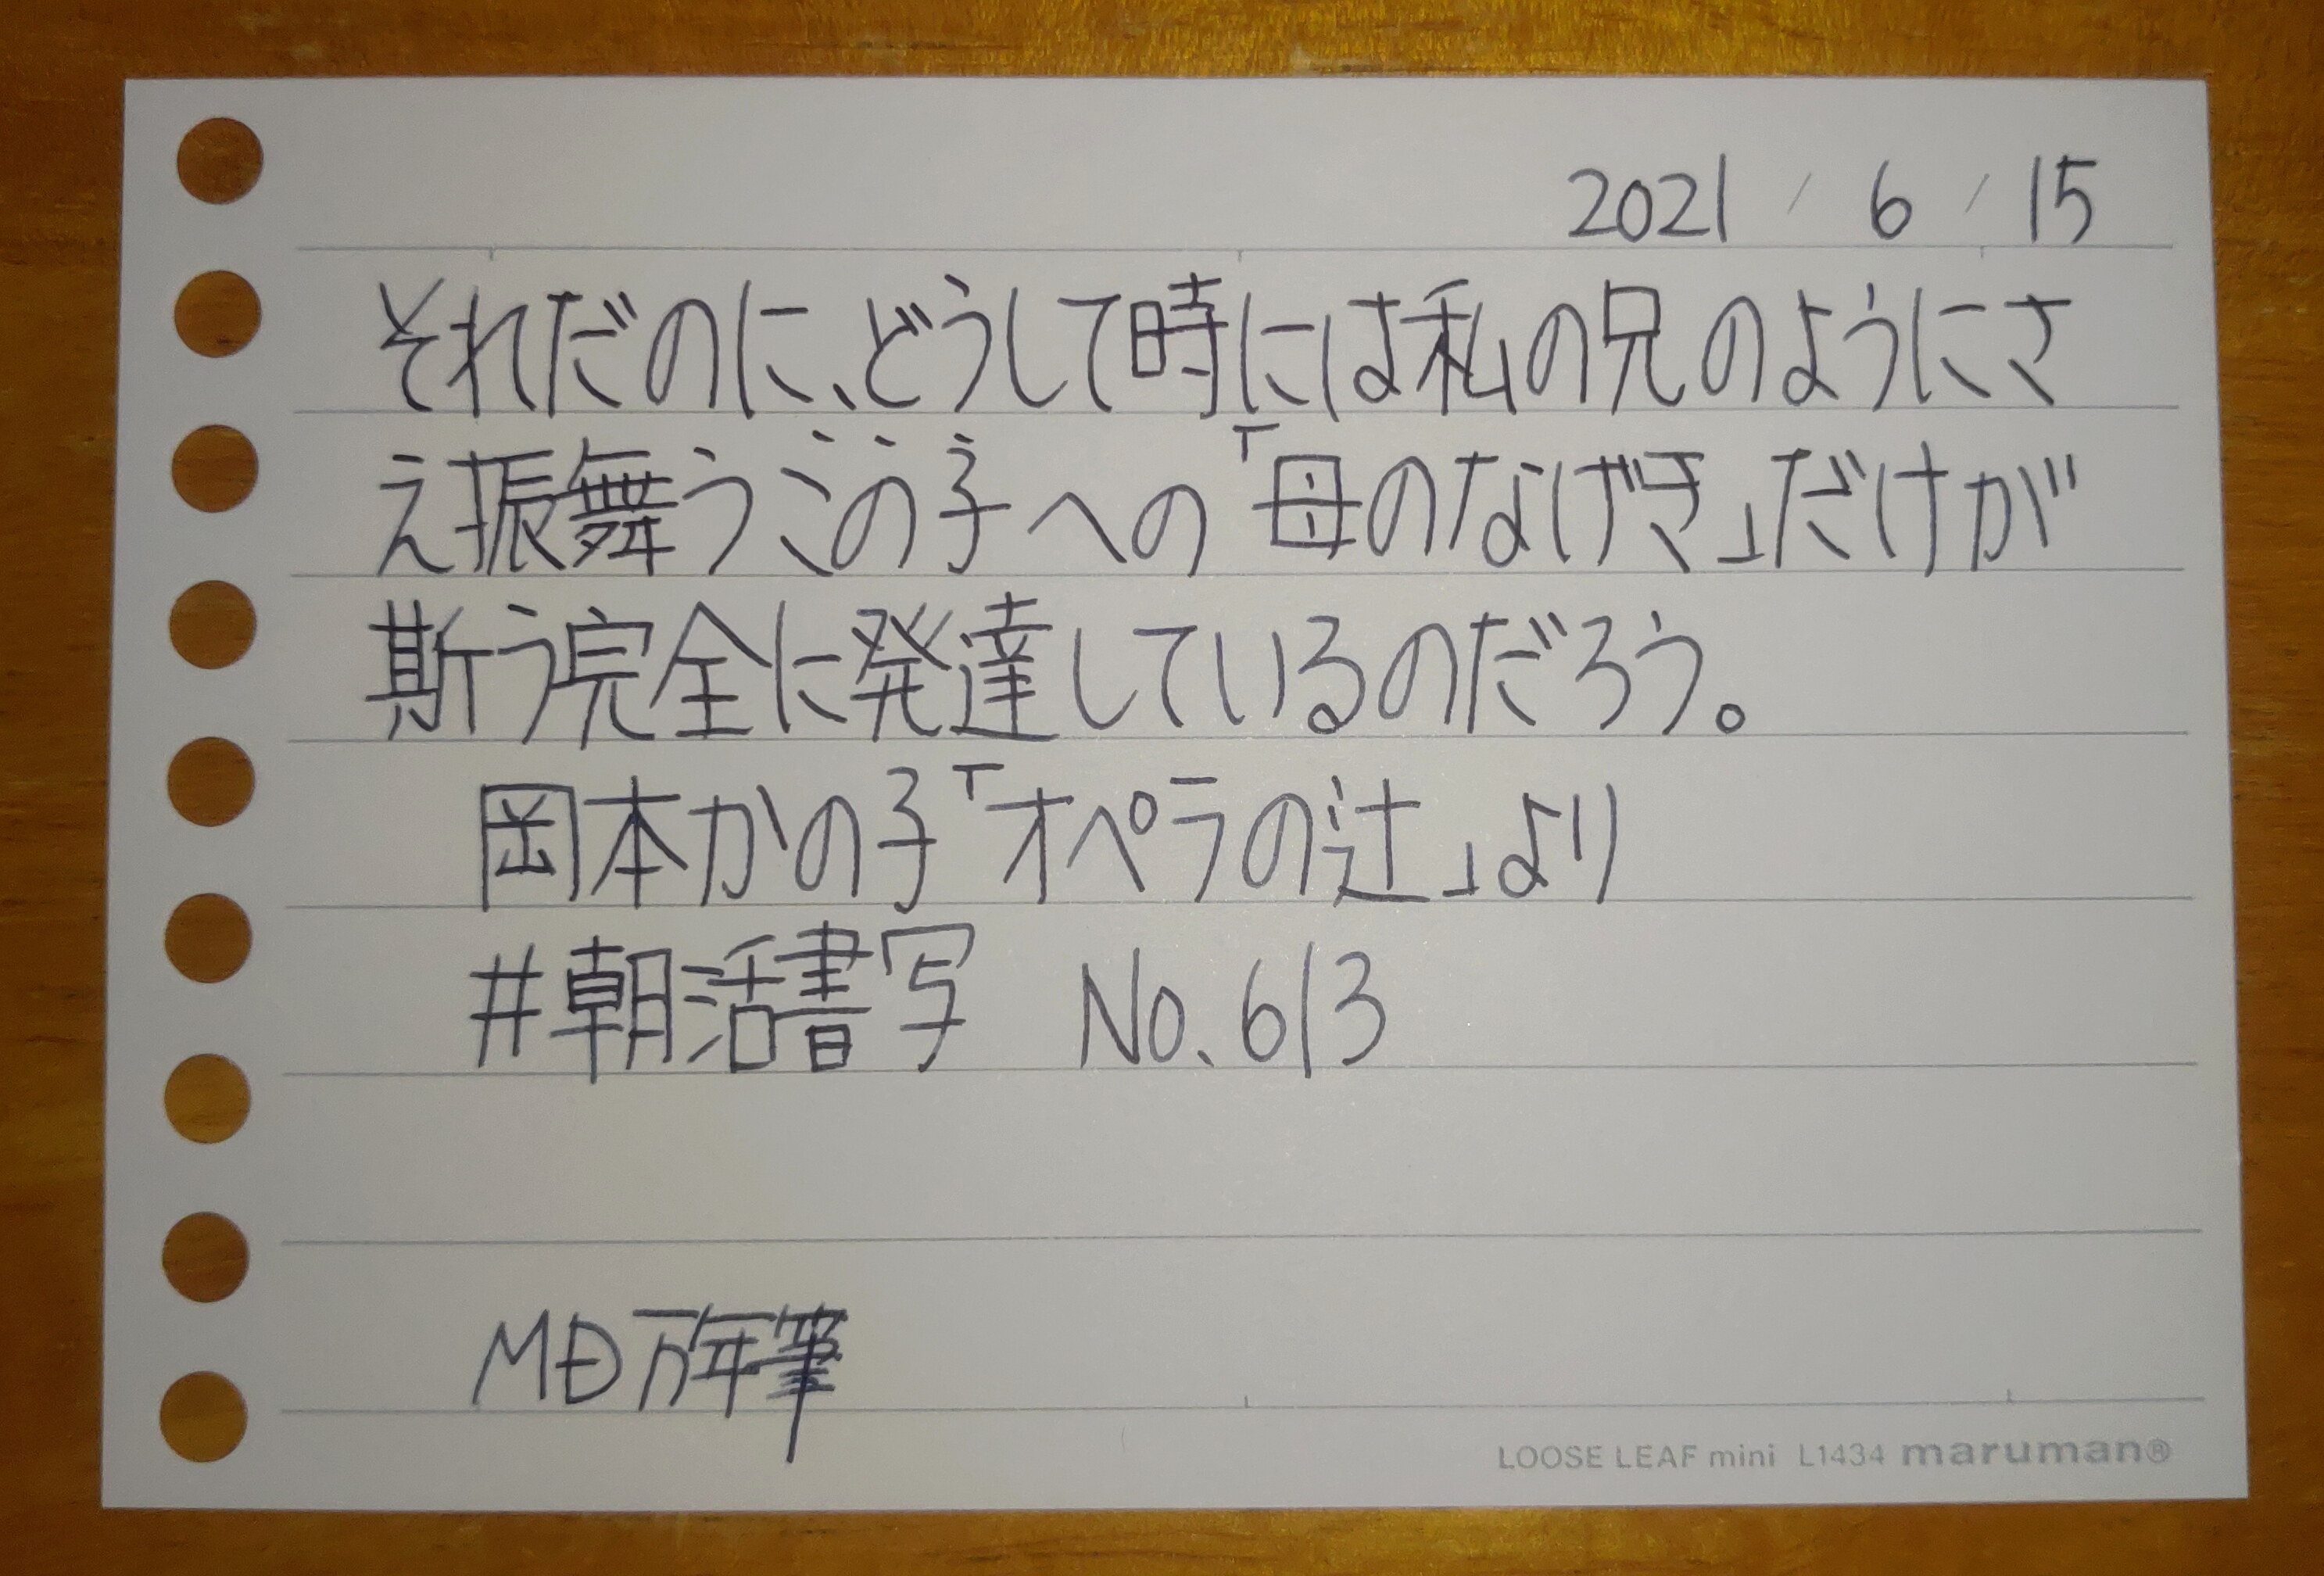 2021 / 6 / 15
それだのに、どうして時には私の兄のようにさ
え振舞うこの子への「母のなげき」だけが
斯う完全に発達しているのだろう。
岡本かの子「オペラの辻」より
#朝活書写 No.613
MD万年筆
LOOSE LEAF mini L1434 maruman®